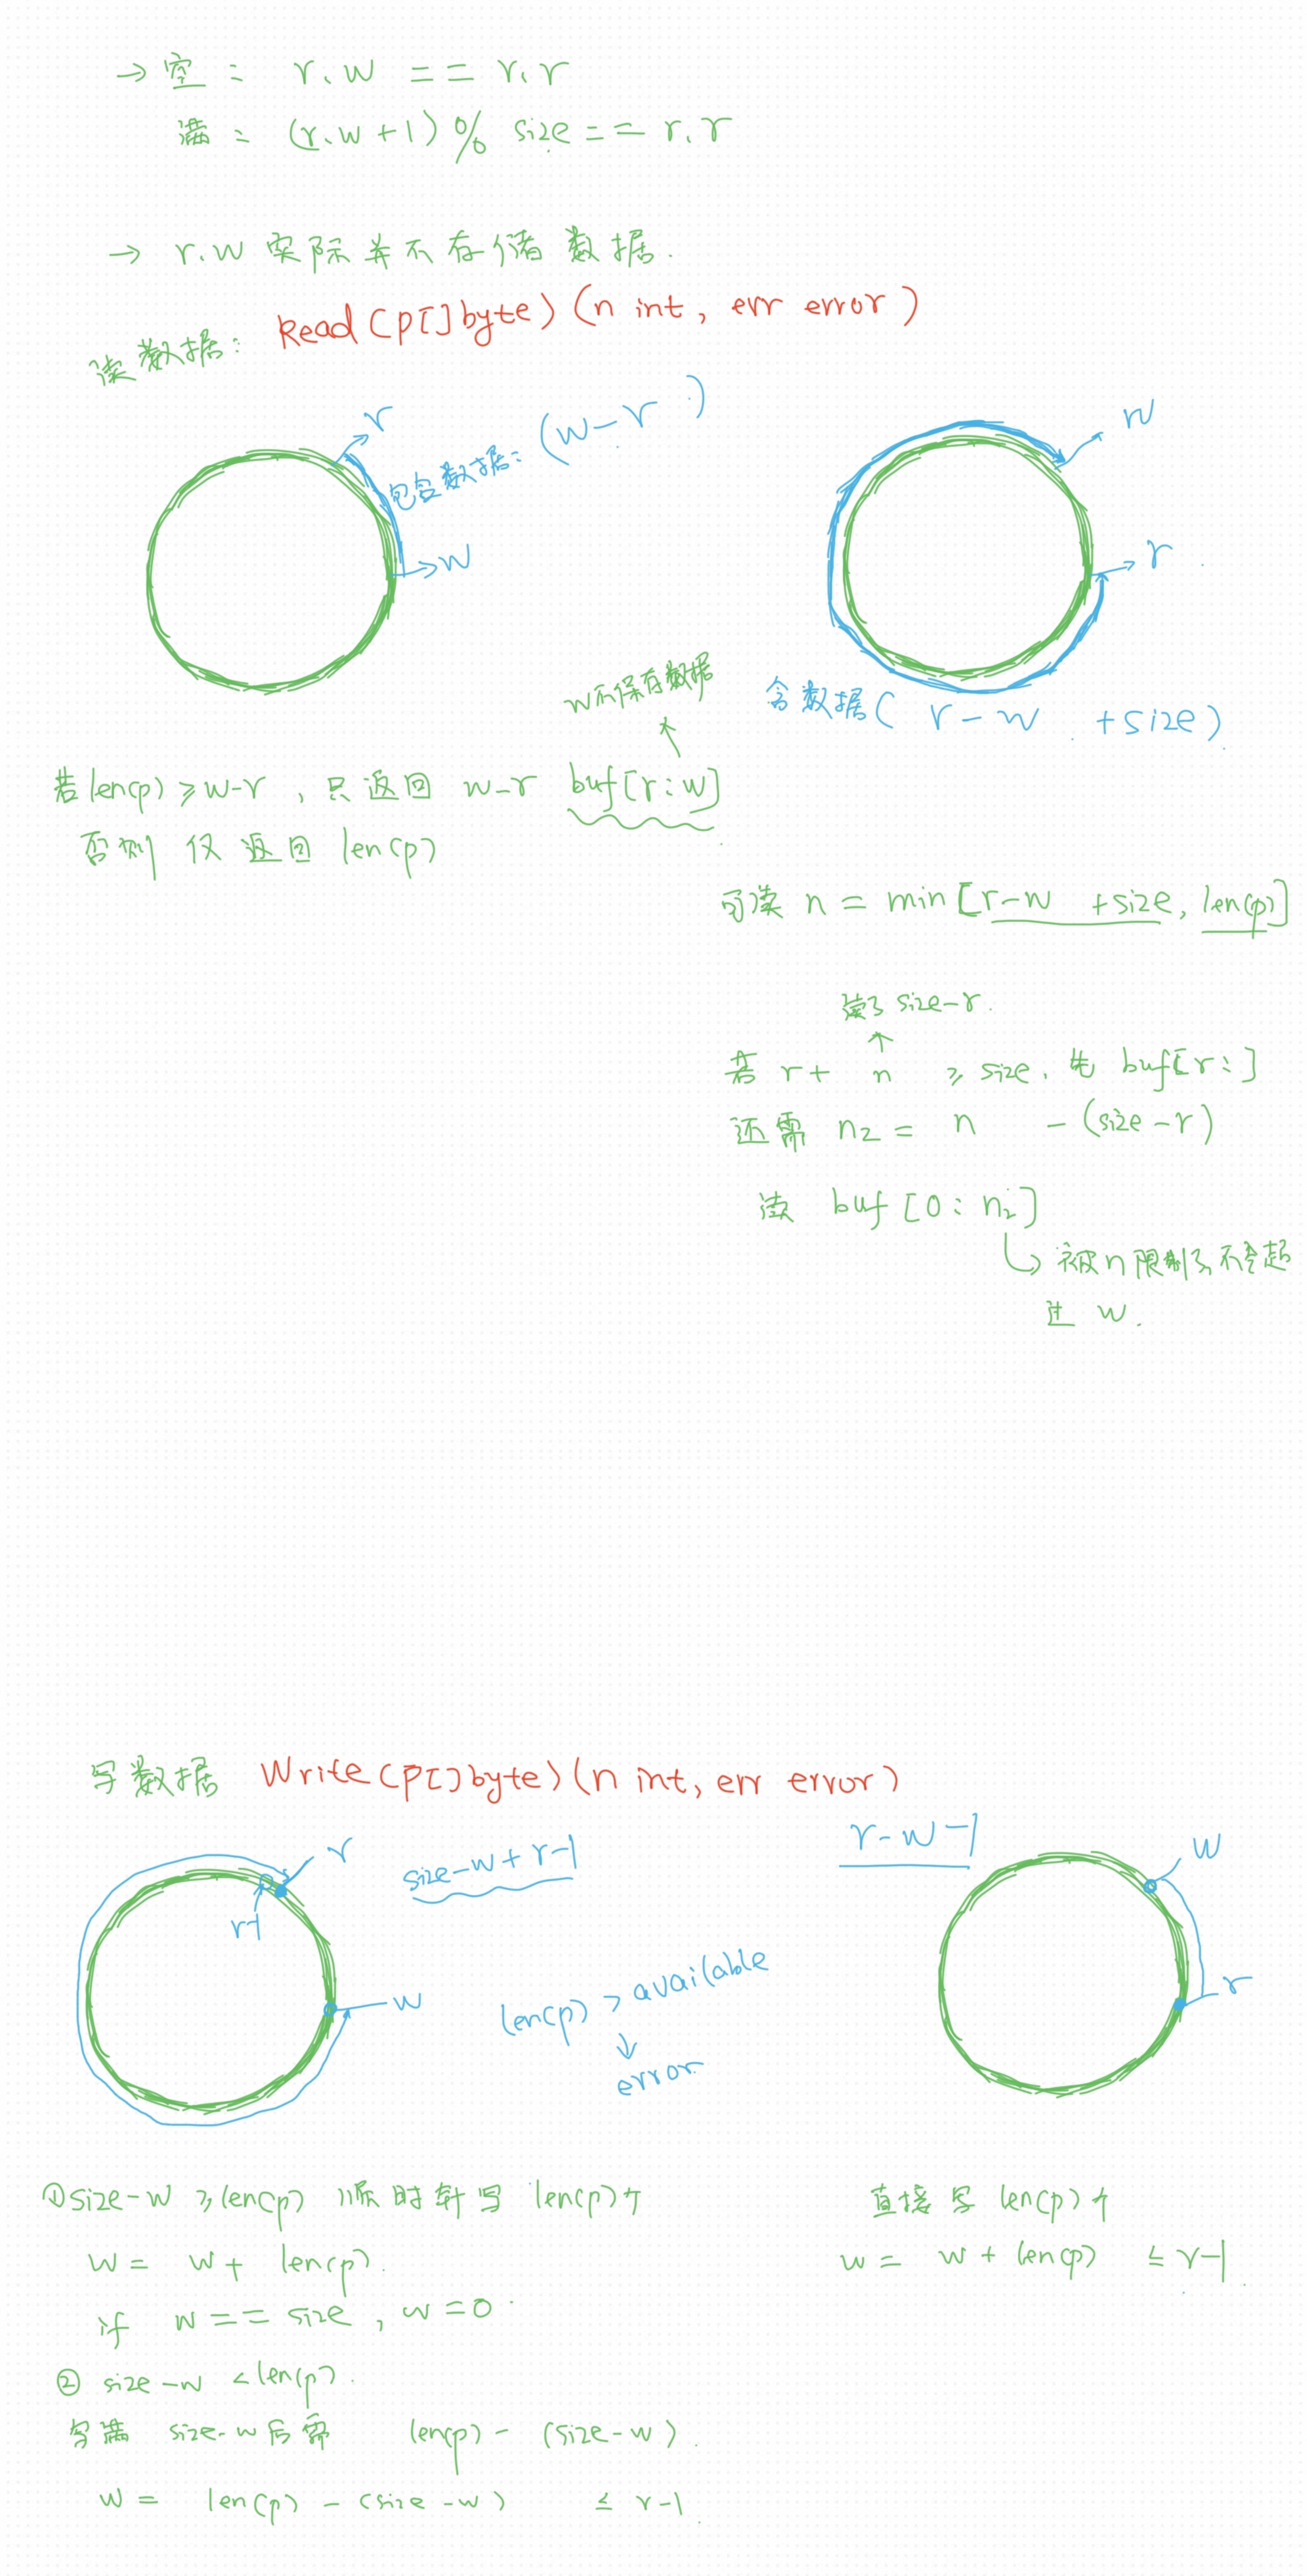 → 空: r.w == r.r
满: (r.w+1)% size == r.r
→ r.w 实际并不存储数据.
读数据: Read(p[]byte)(n int, err error)
r
包含数据: (w-r)
w
w
r
含数据( r-w +size)
w不保存数据
若len(p)≥w-r, 只返回 w-r buf[r:w]
否则 仅返回 len(p)
可读 n = min[r-w +size, len(p)]
读了 size-r.
若 r+ n ≥ size, 先 buf[r:]
还需 n2 = n -(size-r)
读 buf[0:n2]
被n限制了不会超
过 w.
写数据 Write(p[]byte)(n int, err error)
r
size-w+r-1
r-1
w
len(p) > available
error
r-w-1
w
r
①size-w ≥len(p) 顺时针写 len(p)个
w = w+ len(p)
if w == size, w=0
② size-w <len(p).
写满 size-w后需 len(p)- (size-w)
w = len(p) -(size-w) ≤ r-1
直接写 len(p)个
w = w+len(p) ≤ r-1